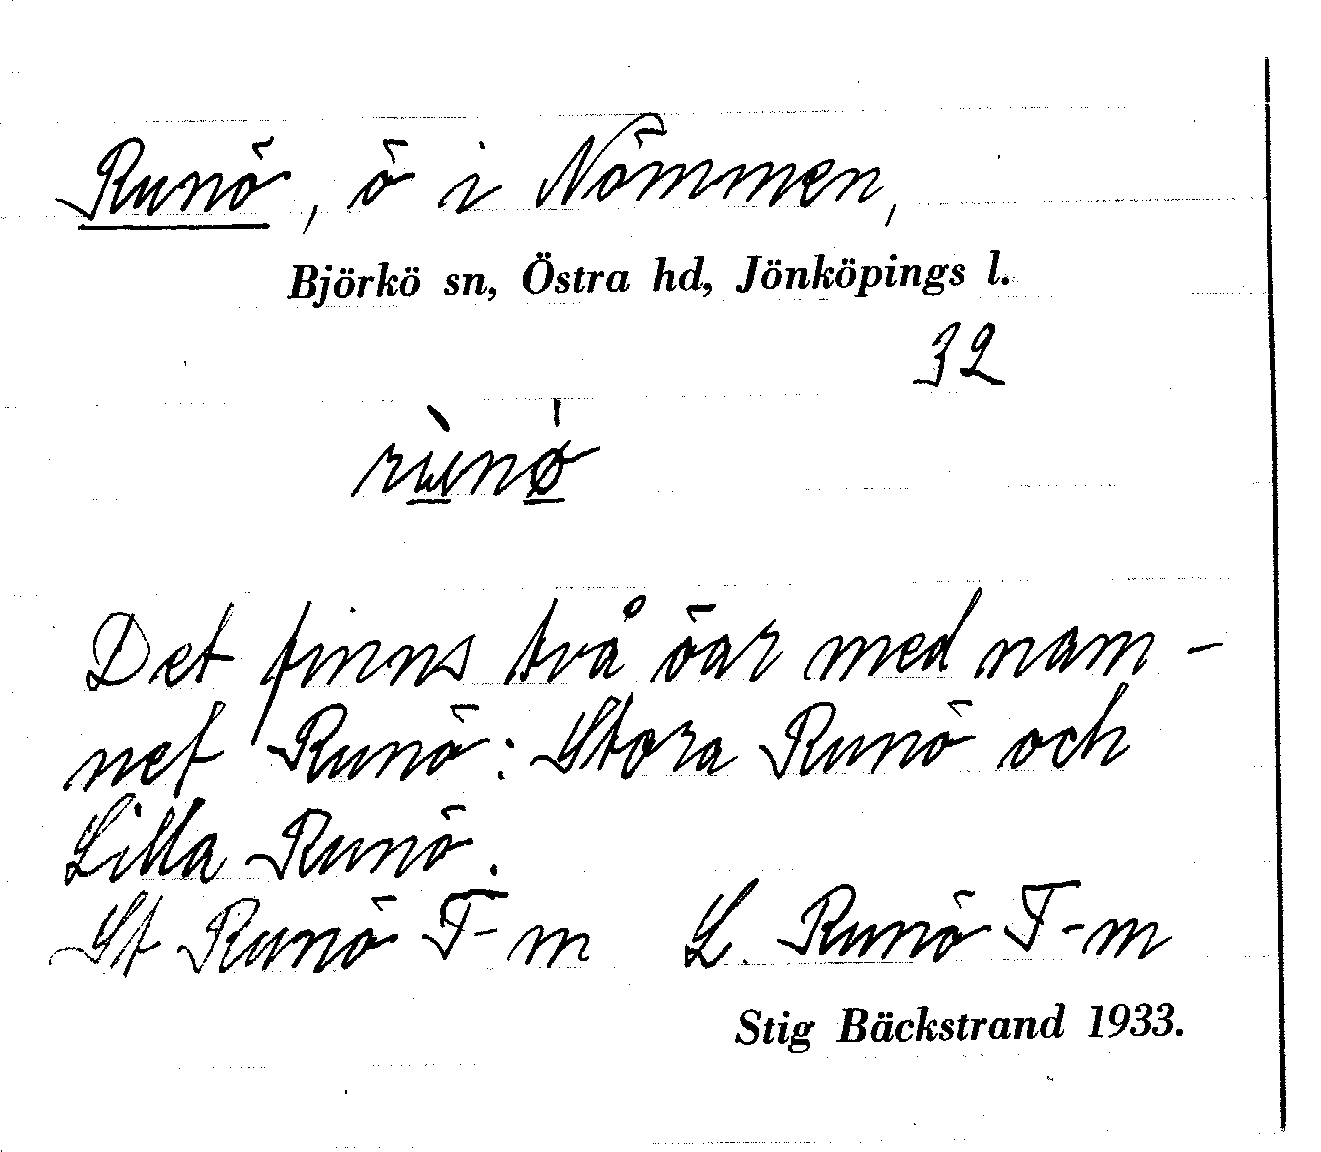 Runö, ö i Nömmen,
Björkö sn, Östra hd, Jönköpings l.
32
rùnø̍
Det finns två öar med nam-
net Runö: Stora Runö och
Lilla Runö.
St Runö T-m L. Runö T-m
Stig Bäckstrand 1933.